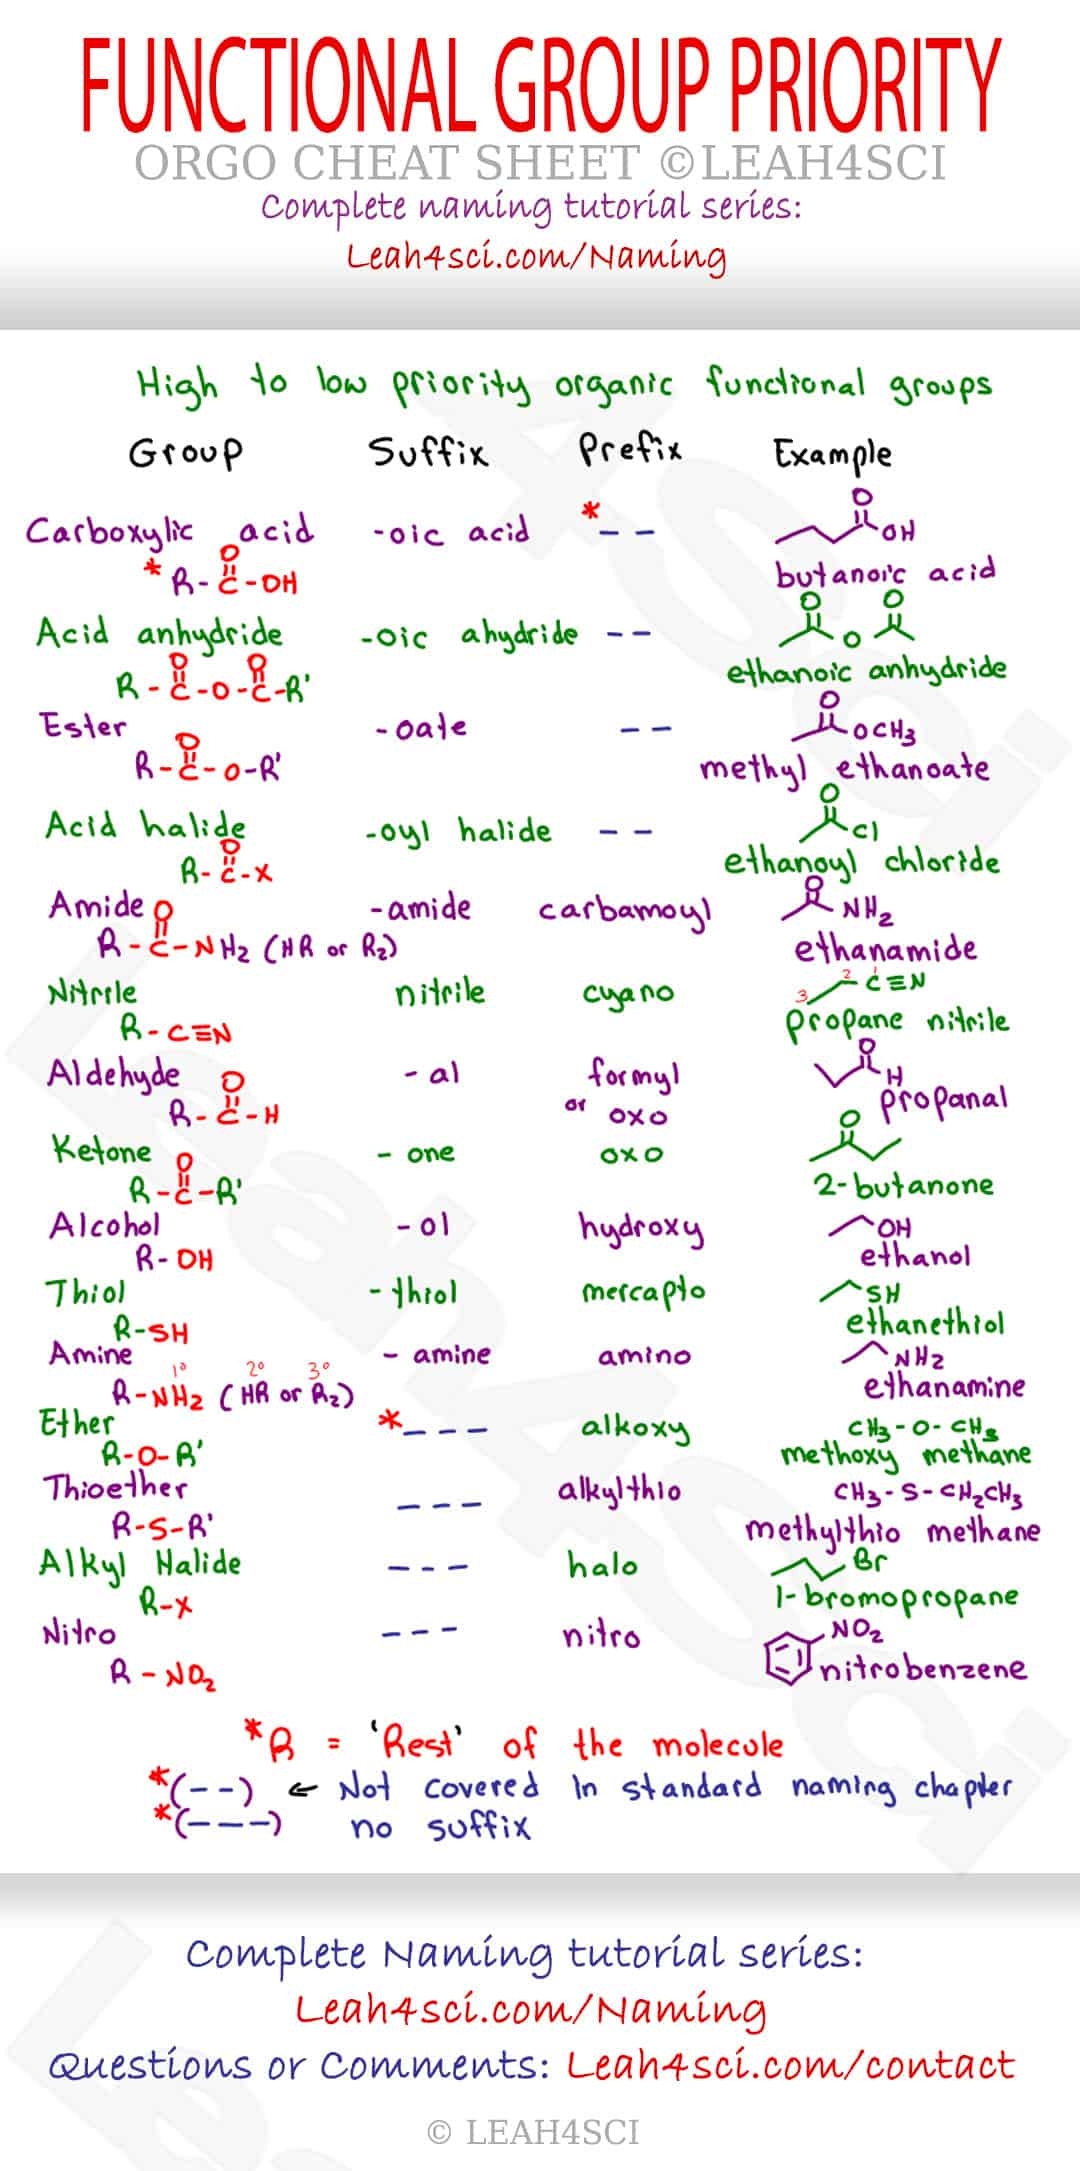 FUNCTIONAL GROUP PRIORITY
ORGO CHEAT SHEET ©LEAH4SCI
Complete naming tutorial series:
Leah4sci.com/Naming
High to low priority organic functional groups
Group Suffix Prefix Example
Carboxylic acid -oic acid *-- O OH
* R-C-OH O butanoic acid
Acid anhydride -oic ahydride -- O O O
R-C-O-C-R' O O ethanoic anhydride
Ester -oate -- O OCH3
R-C-O-R' O methyl ethanoate
Acid halide -oyl halide -- O Cl
R-C-X O ethanoyl chloride
Amide -amide carbamoyl O NH2
R-C-NH2 (HR or R2) O ethanamide
Nitrile nitrile cyano 3 2 1 C≡N
R-C≡N propane nitrile
Aldehyde -al formyl O H
R-C-H O or oxo propanal
Ketone -one oxo O
R-C-R' O 2-butanone
Alcohol -ol hydroxy OH
R-OH ethanol
Thiol -thiol mercapto SH
R-SH ethanethiol
Amine -amine amino NH2
1° 2° 3°
R-NH2 (HR or R2) ethanamine
Ether *--- alkoxy CH3-O-CH3
R-O-R' methoxy methane
Thioether --- alkylthio CH3-S-CH2CH3
R-S-R' methylthio methane
Alkyl Halide --- halo Br
R-X 1-bromopropane
Nitro --- nitro NO2
R-NO2 nitrobenzene
*R = 'Rest' of the molecule
*(--) ← Not covered in standard naming chapter
*(---) no suffix
Complete Naming tutorial series:
Leah4sci.com/Naming
Questions or Comments: Leah4sci.com/contact
© LEAH4SCI